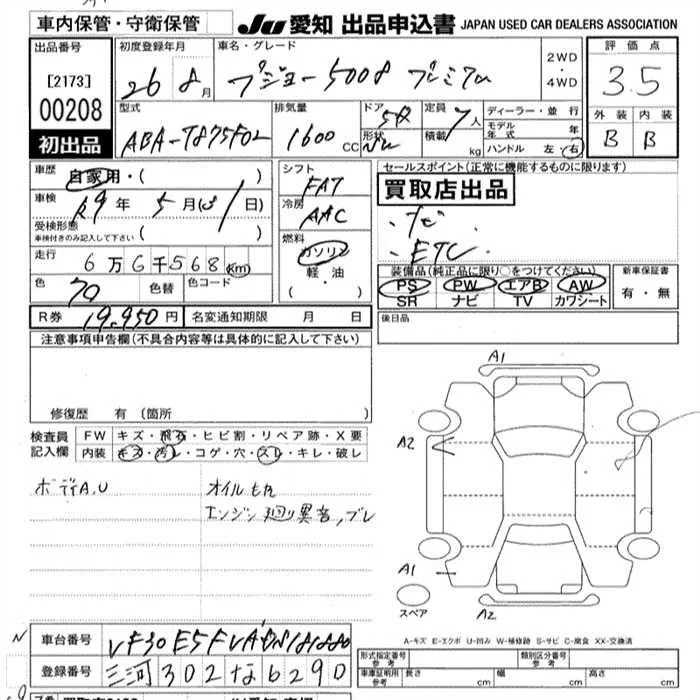 車内保管・守衛保管
JU 愛知 出品申込書 JAPAN USED CAR DEALERS ASSOCIATION
出品番号
[2173]
00208
初出品
初度登録年月
26 8月
車名・グレード
プジョー5008 プレミアム
2WD
・
4WD
評価点
3.5
外装 内装
B B
型式
ABA-T875F02
排気量
1600 CC
ドア 5D
形状
定員 7人
積載 kg
ディーラー・並行
モデル年式 年
ハンドル 左・右
車歴
自家用・( )
車検
R9年 5月( 1日)
受検形態
車検付きのみ記入して下さい ( )
走行
6万6千568km
色 色替 色コード
シフト
FAT
冷房
AAC
燃料
ガソリン
軽・油
( ・ )
セールスポイント(正常に機能するものに限ります)
買取店出品
・ナビ
・ETC
装備品(純正品に限り○をつけてください)
PS PW エアB AW
SR ナビ TV カワシート
新車保証書
有・無
R券 19,950円 名変通知期限 月 日
後日品
注意事項申告欄(不具合内容等は具体的に記入して下さい)
修復歴 有(箇所 )
検査員記入欄
FW キズ・飛石・ヒビ割・リペア跡・X要
内装 キズ・汚レ・コゲ・穴・スレ・キレ・破レ
ボディA,U
オイルもれ
エンジン廻り異音,ブレ
A1
A2
A1
A2
スペア
A-キズ E-エクボ U-凹み W-補修跡 S-サビ C-腐食 XX-交換済
車台番号
登録番号 三河302な6290
形式指定番号 参考
類別区分番号 参考
車庫証明用 参考 長さ cm 幅 cm 高さ cm